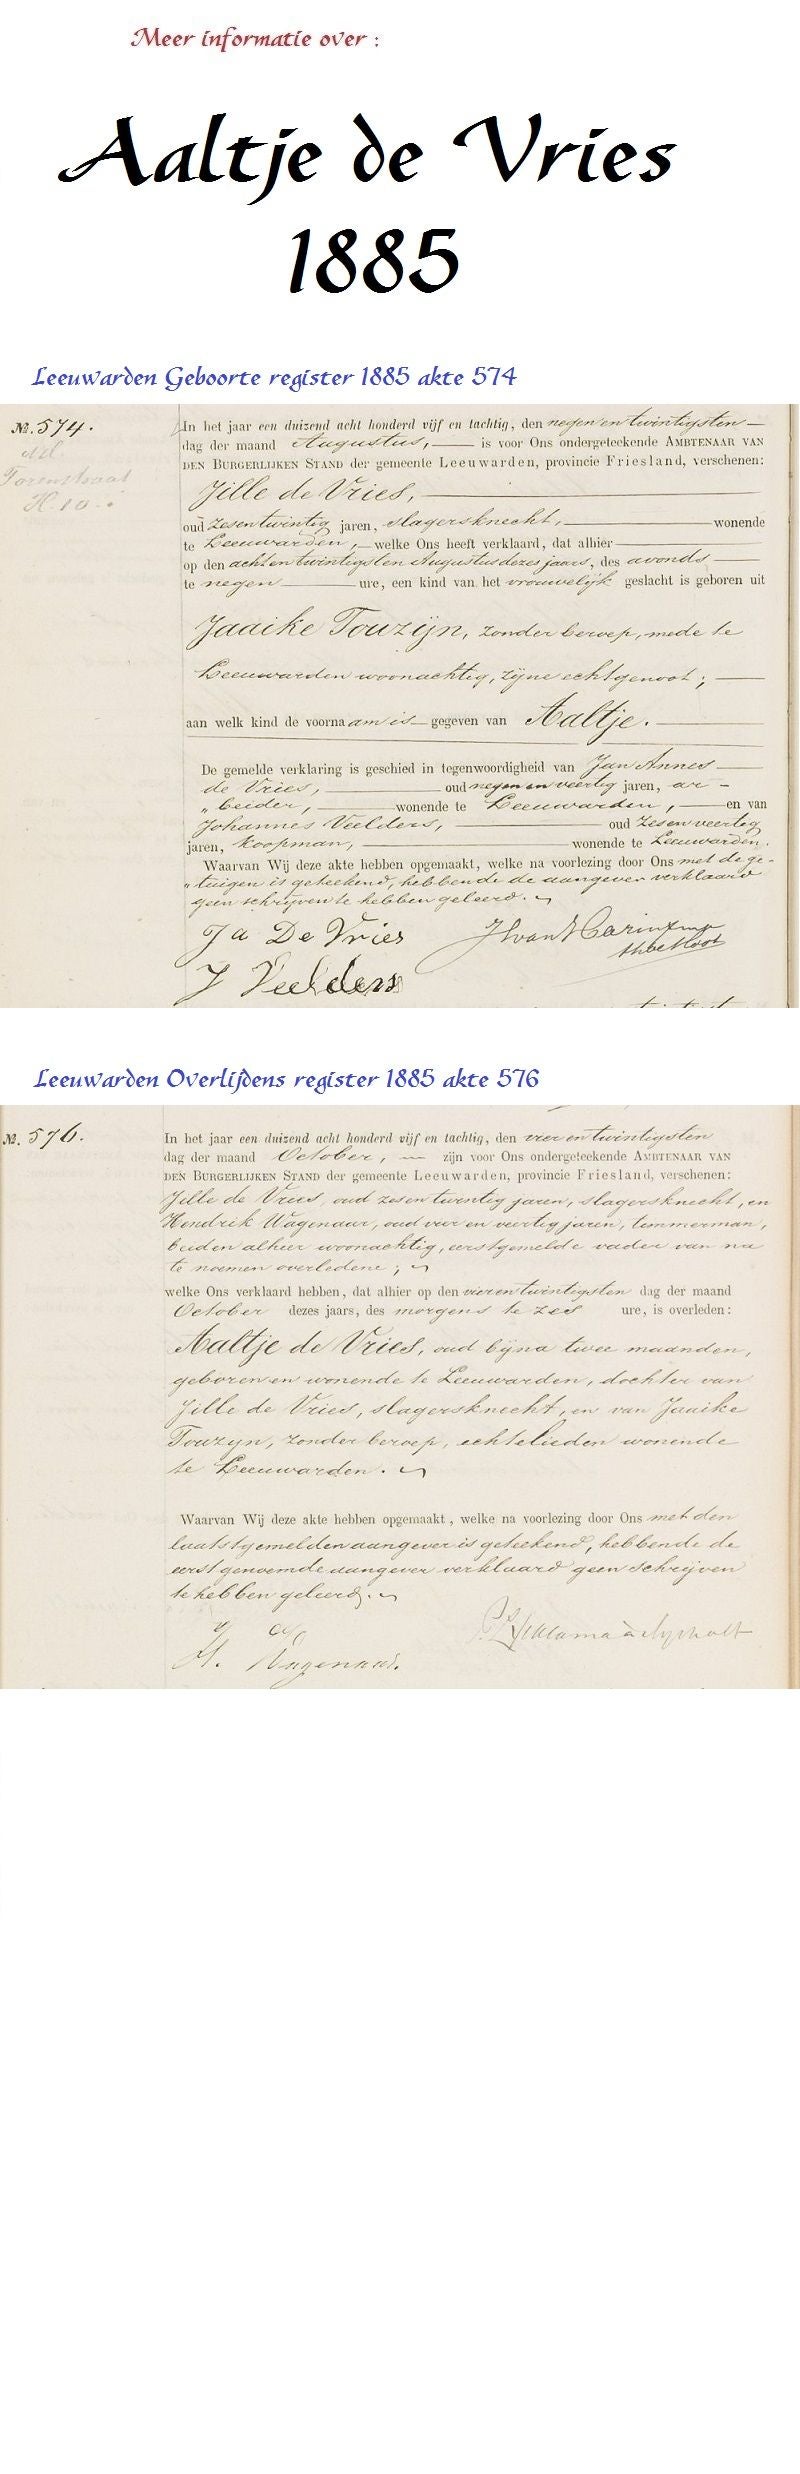 Meer informatie over :
Aaltje de Vries
1885
Leeuwarden Geboorte register 1885 akte 574
№. 574.
Torenstraat
H. 10
In het jaar een duizend acht honderd vijf en tachtig, den negen en twintigsten
dag der maand Augustus, is voor Ons ondergeteekende AMBTENAAR VAN
DEN BURGERLIJKEN STAND der gemeente Leeuwarden, provincie Friesland, verschenen:
Jille de Vries,
oud zesentwintig jaren, slagersknecht, wonende
te Leeuwarden, welke Ons heeft verklaard, dat alhier
op den achtentwintigsten Augustus dezes jaars, des avonds
te negen ure, een kind van het vrouwelijk geslacht is geboren uit
Jaaike Touzijn, zonder beroep, mede te
Leeuwarden woonachtig, zijne echtgenoot;
aan welk kind de voornaam is gegeven van Aaltje.
De gemelde verklaring is geschied in tegenwoordigheid van Jan Annes
de Vries, oud negen en veertig jaren, ar-
„beider, wonende te Leeuwarden, en van
Johannes Veelders, oud zesenveertig
jaren, koopman, wonende te Leeuwarden.
Waarvan Wij deze akte hebben opgemaakt, welke na voorlezing door Ons met de ge-
„tuigen is geteekend, hebbende de aangever verklaard
geen schrijven te hebben geleerd.
Ja De Vries
J Veelders
Leeuwarden Overlijdens register 1885 akte 576
№. 576.
In het jaar een duizend acht honderd vijf en tachtig, den vier en twintigsten
dag der maand October, zijn voor Ons ondergeteekende AMBTENAAR VAN
DEN BURGERLIJKEN STAND der gemeente Leeuwarden, provincie Friesland, verschenen:
Jille de Vries, oud zesen twintig jaren, slagersknecht, en
Hendrik Wagenaar, oud vier en veertig jaren, timmerman,
beiden alhier woonachtig, eerstgemelde vader van na
te noemen overledene;
welke Ons verklaard hebben, dat alhier op den vierentwintigsten dag der maand
October dezes jaars, des morgens te zes ure, is overleden:
Aaltje de Vries, oud bijna twee maanden,
geboren en wonende te Leeuwarden, dochter van
Jille de Vries, slagersknecht, en van Jaaike
Touzyn, zonder beroep, echtelieden wonende
te Leeuwarden.
Waarvan Wij deze akte hebben opgemaakt, welke na voorlezing door Ons met den
laatstgemelden aangever is geteekend, hebbende de
eerstgenoemde aangever verklaard geen schrijven
te hebben geleerd.
H. Wagenaar.